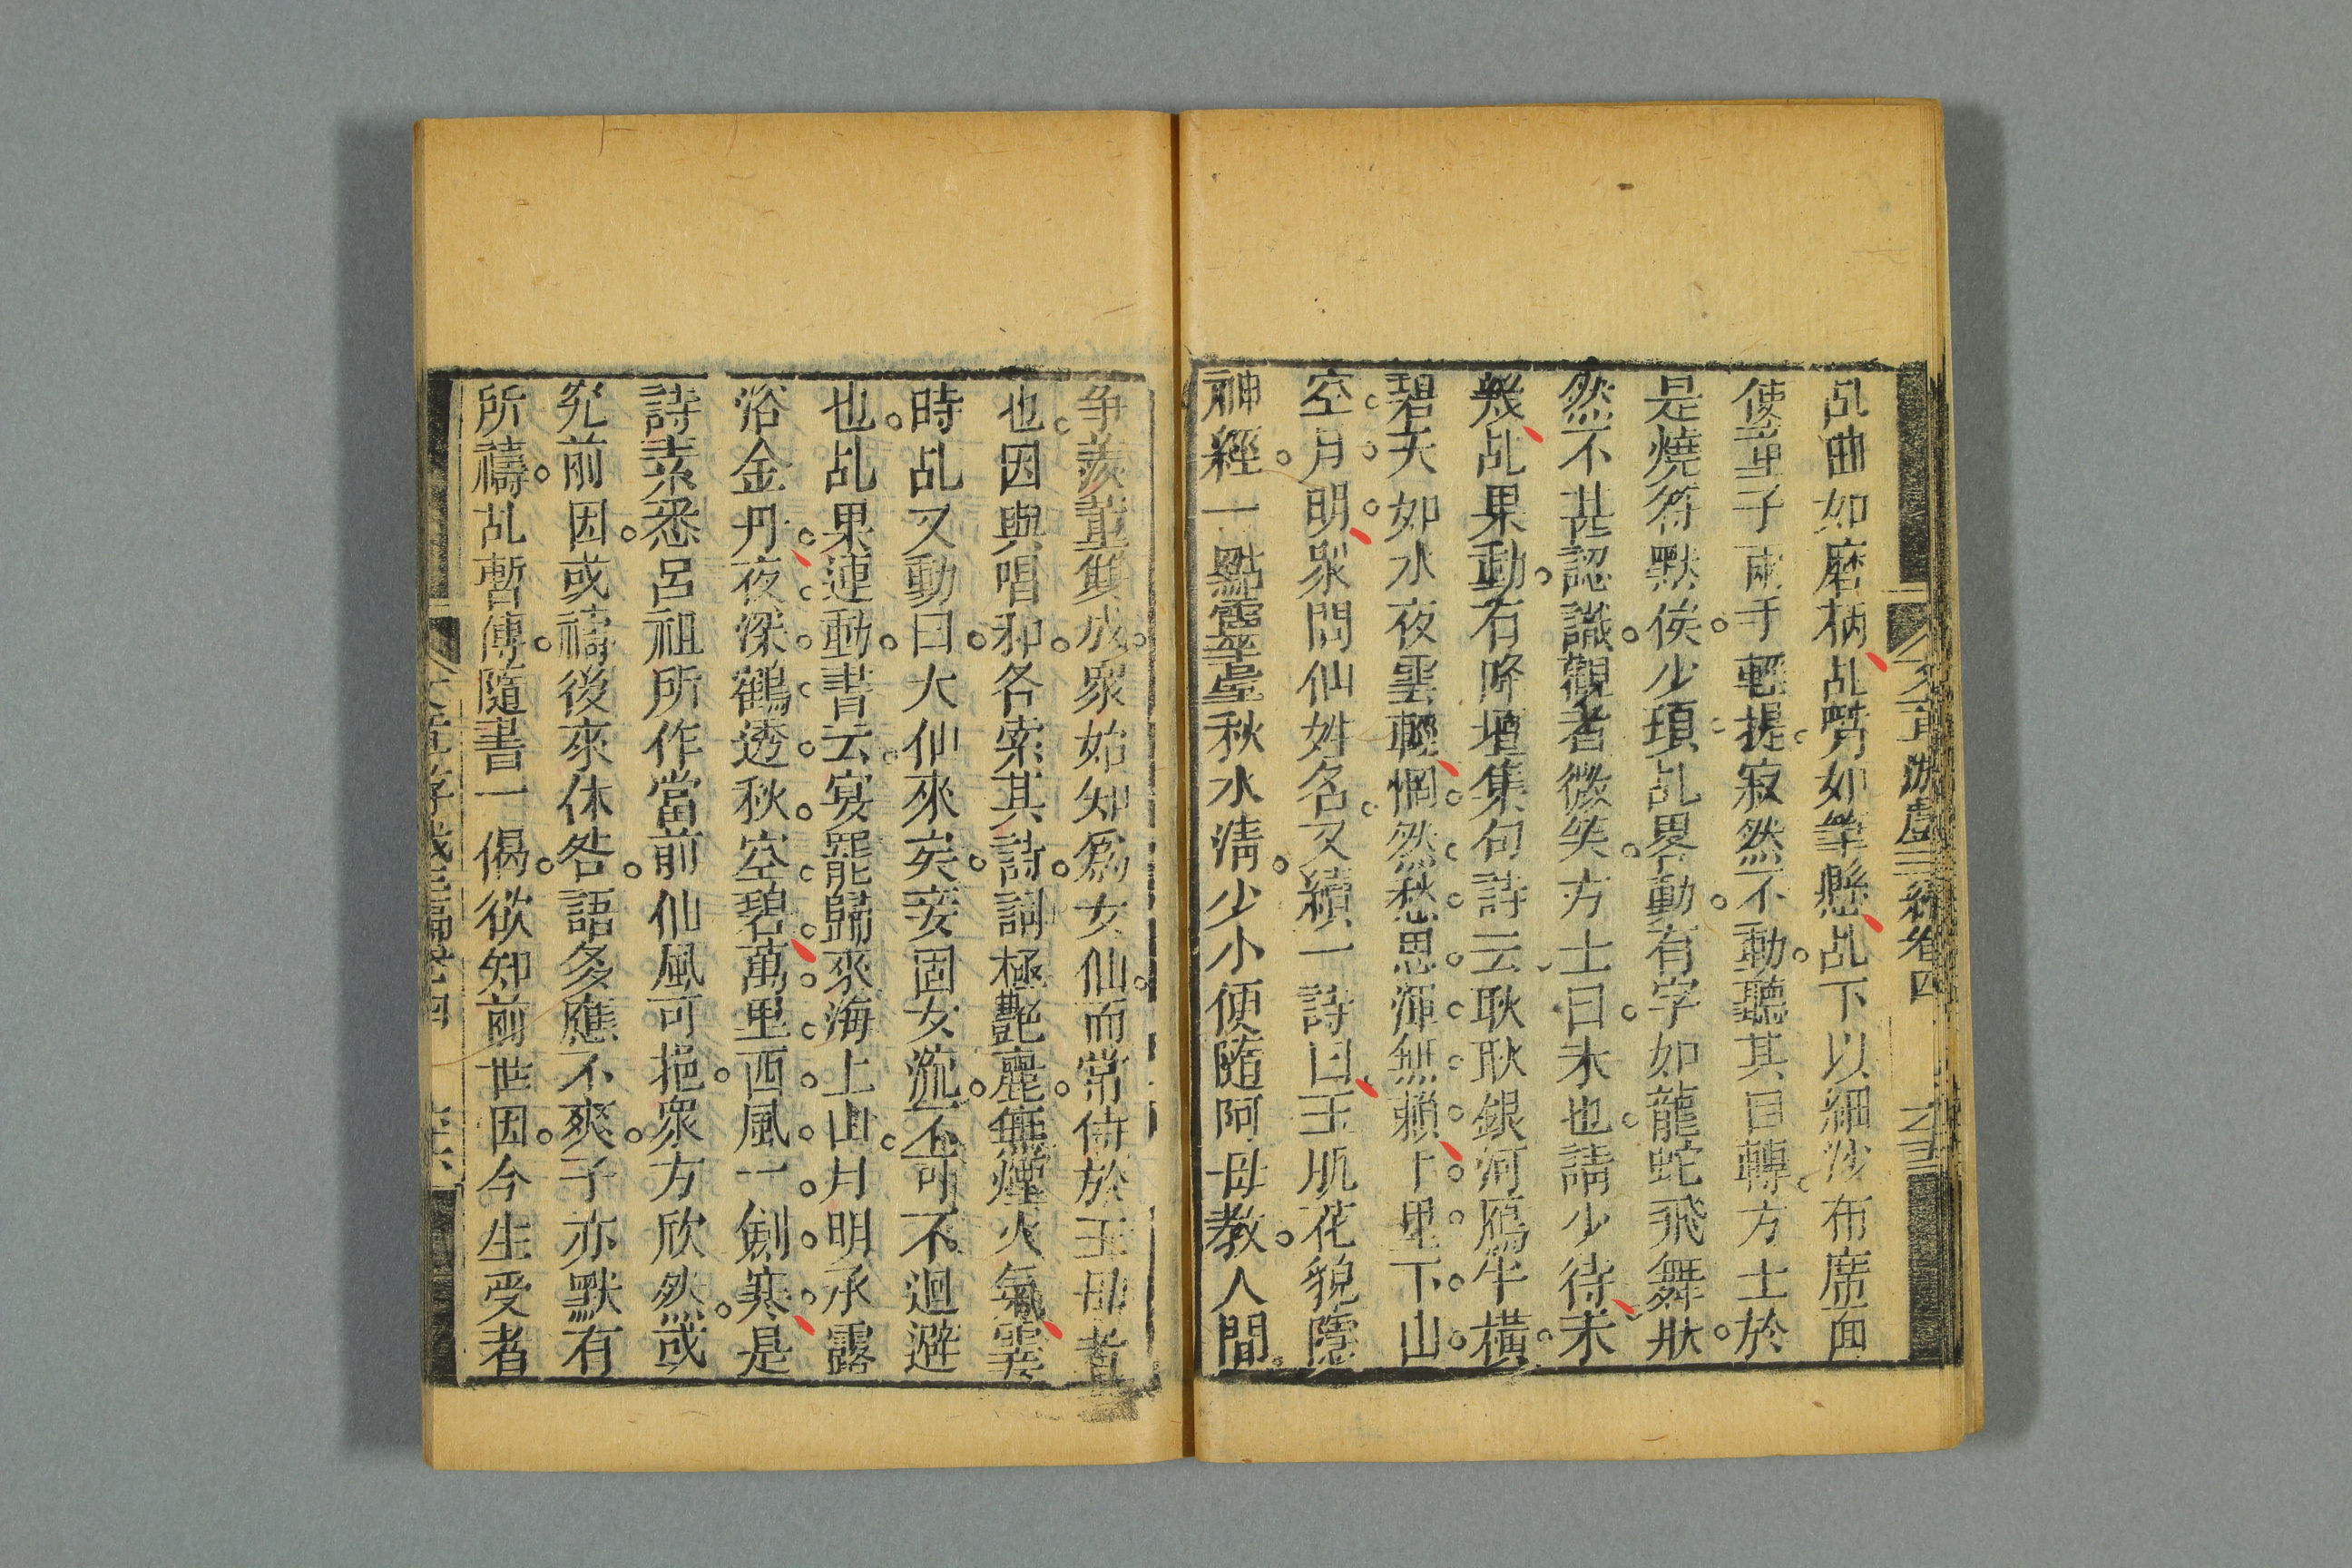 乩曲如磨柄乩嘴如筆懸乩下以細沙布席面
使童子兩手輕提寂然不動聽其自轉方士於
是燒符默俟少頃乩畧動有字如龍蛇飛舞狀
然不甚認識觀者微笑方士曰未也請少待未
幾乩果動右降壇集句詩云耿耿銀河鴈半橫
碧天如水夜雲輕惘然愁思渾無賴十里下山
空月明衆問仙姓名又續一詩曰玉肌花貌隱
神經一點靈臺秋水清少小便隨阿母教人間
爭羨董雙成衆始知爲女仙而常侍於王母者
也因與唱和各索其詩詞極艷麗無煙火氣霎
時乩又動曰大仙來矣妾固女流不可不迴避
也乩果連動書云宴罷歸來海上山月明承露
浴金丹夜深鶴透秋空碧萬里西風一劍寒是
詩素悉呂祖所作當前仙風可挹衆方欣然或
究前因或禱後來休咎語多應不爽子亦默有
所禱乩暫停隨書一偈欲知前世因今生受者